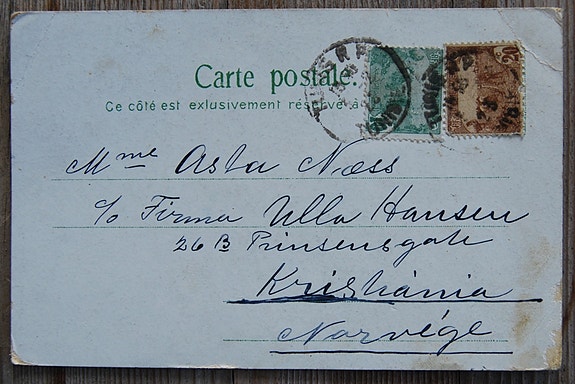 Carte postale.
Ce côté est exlusivement réservé à
Mme Asta Næss
c/o Firma Ulla Hansen
26 B Prinsensgate
Kristiánia
Norvége